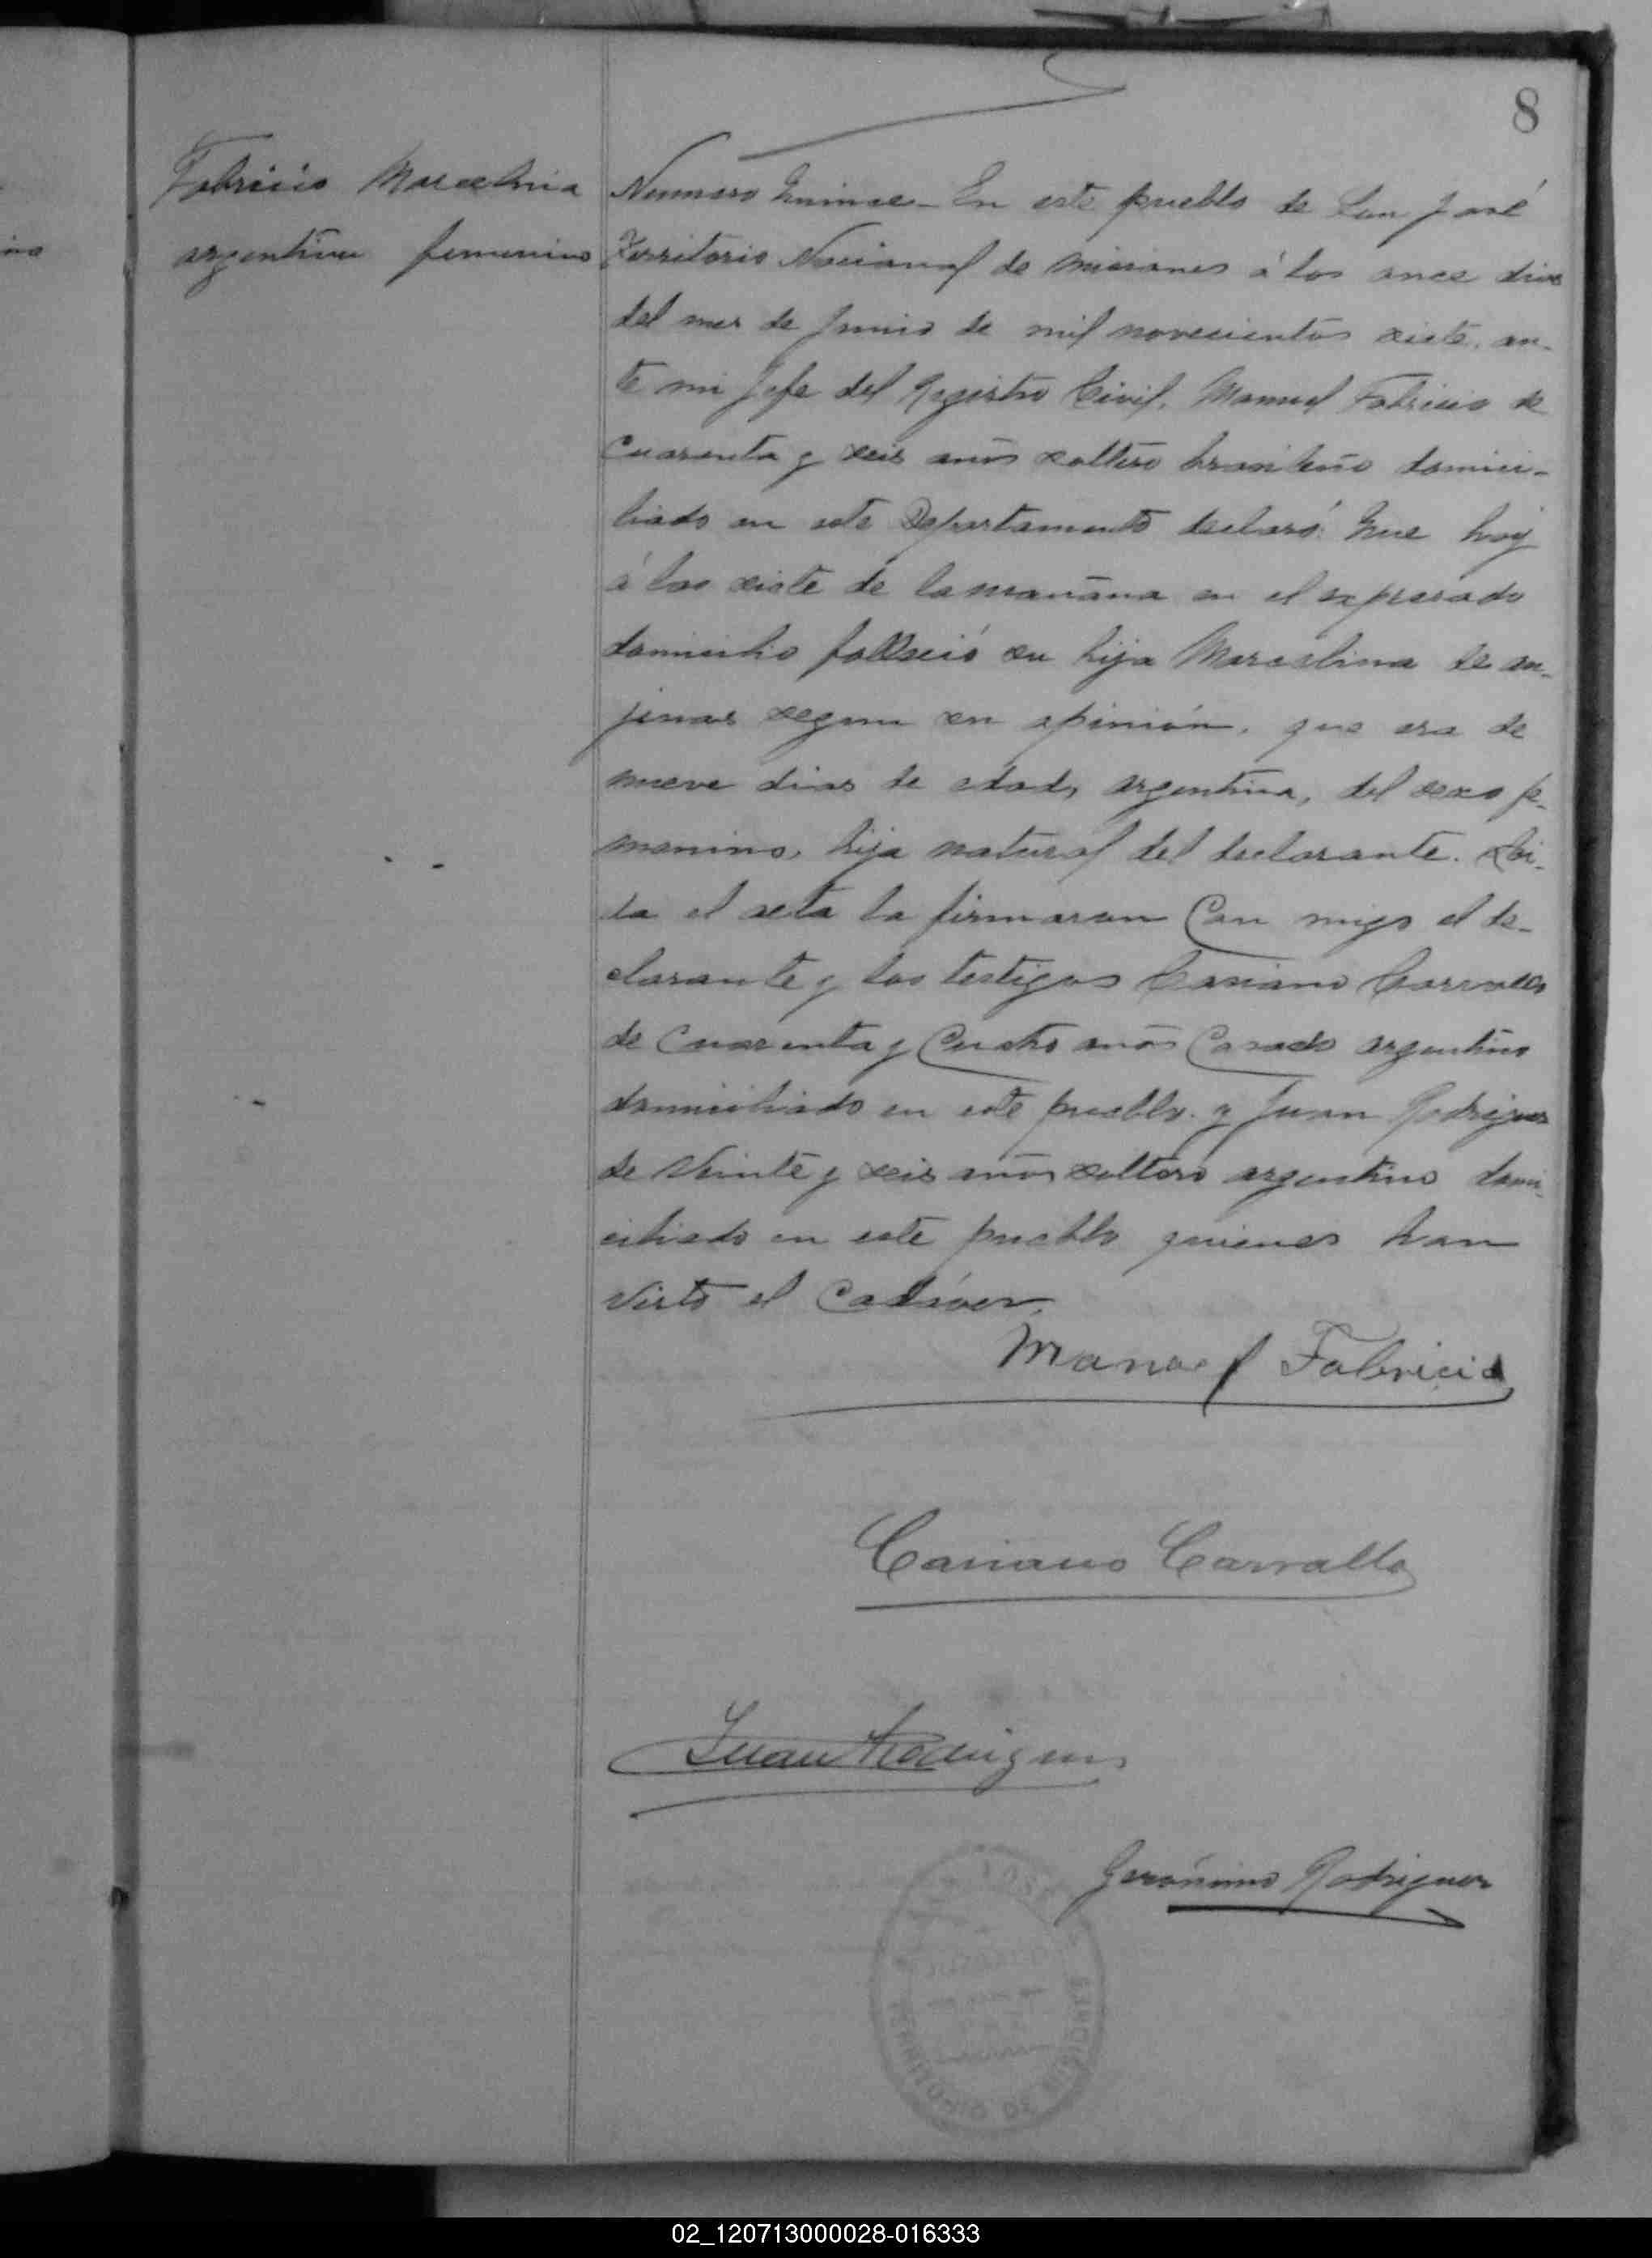 8
Fabricio Marcelina
argentina femenino
Numero Quince_ En este pueblo de San José
Territorio Nacional de Misiones á los once dias
del mes de Junio de mil novecientos siete, an-
te mi Jefe del Registro Civil, Manuel Fabricio de
Cuarenta y seis años soltero brasileño domici-
liado en este Departamento declaró: Que hoy
á las siete de la mañana en el expresado
domicilio falleció su hija Marcelina de an-
jinas segun su opinión, que era de
nueve dias de edad, argentina, del sexo fe-
menino, hija natural del declarante. Lei-
da el acta la firmaron Con migo el de-
clarante y los testigos Casiano Carvallo
de Cuarenta y Cuatro años Casado argentino
domiciliado en este pueblo y Juan Rodriguez
de Veinte y seis años soltero argentino domi-
ciliado en este pueblo quienes han
visto el Cadáver.
Manoel Fabricio
Casiano Carvallo
Juan Rodriguez
Gerónimo Rodriguez
02_120713000028-016333